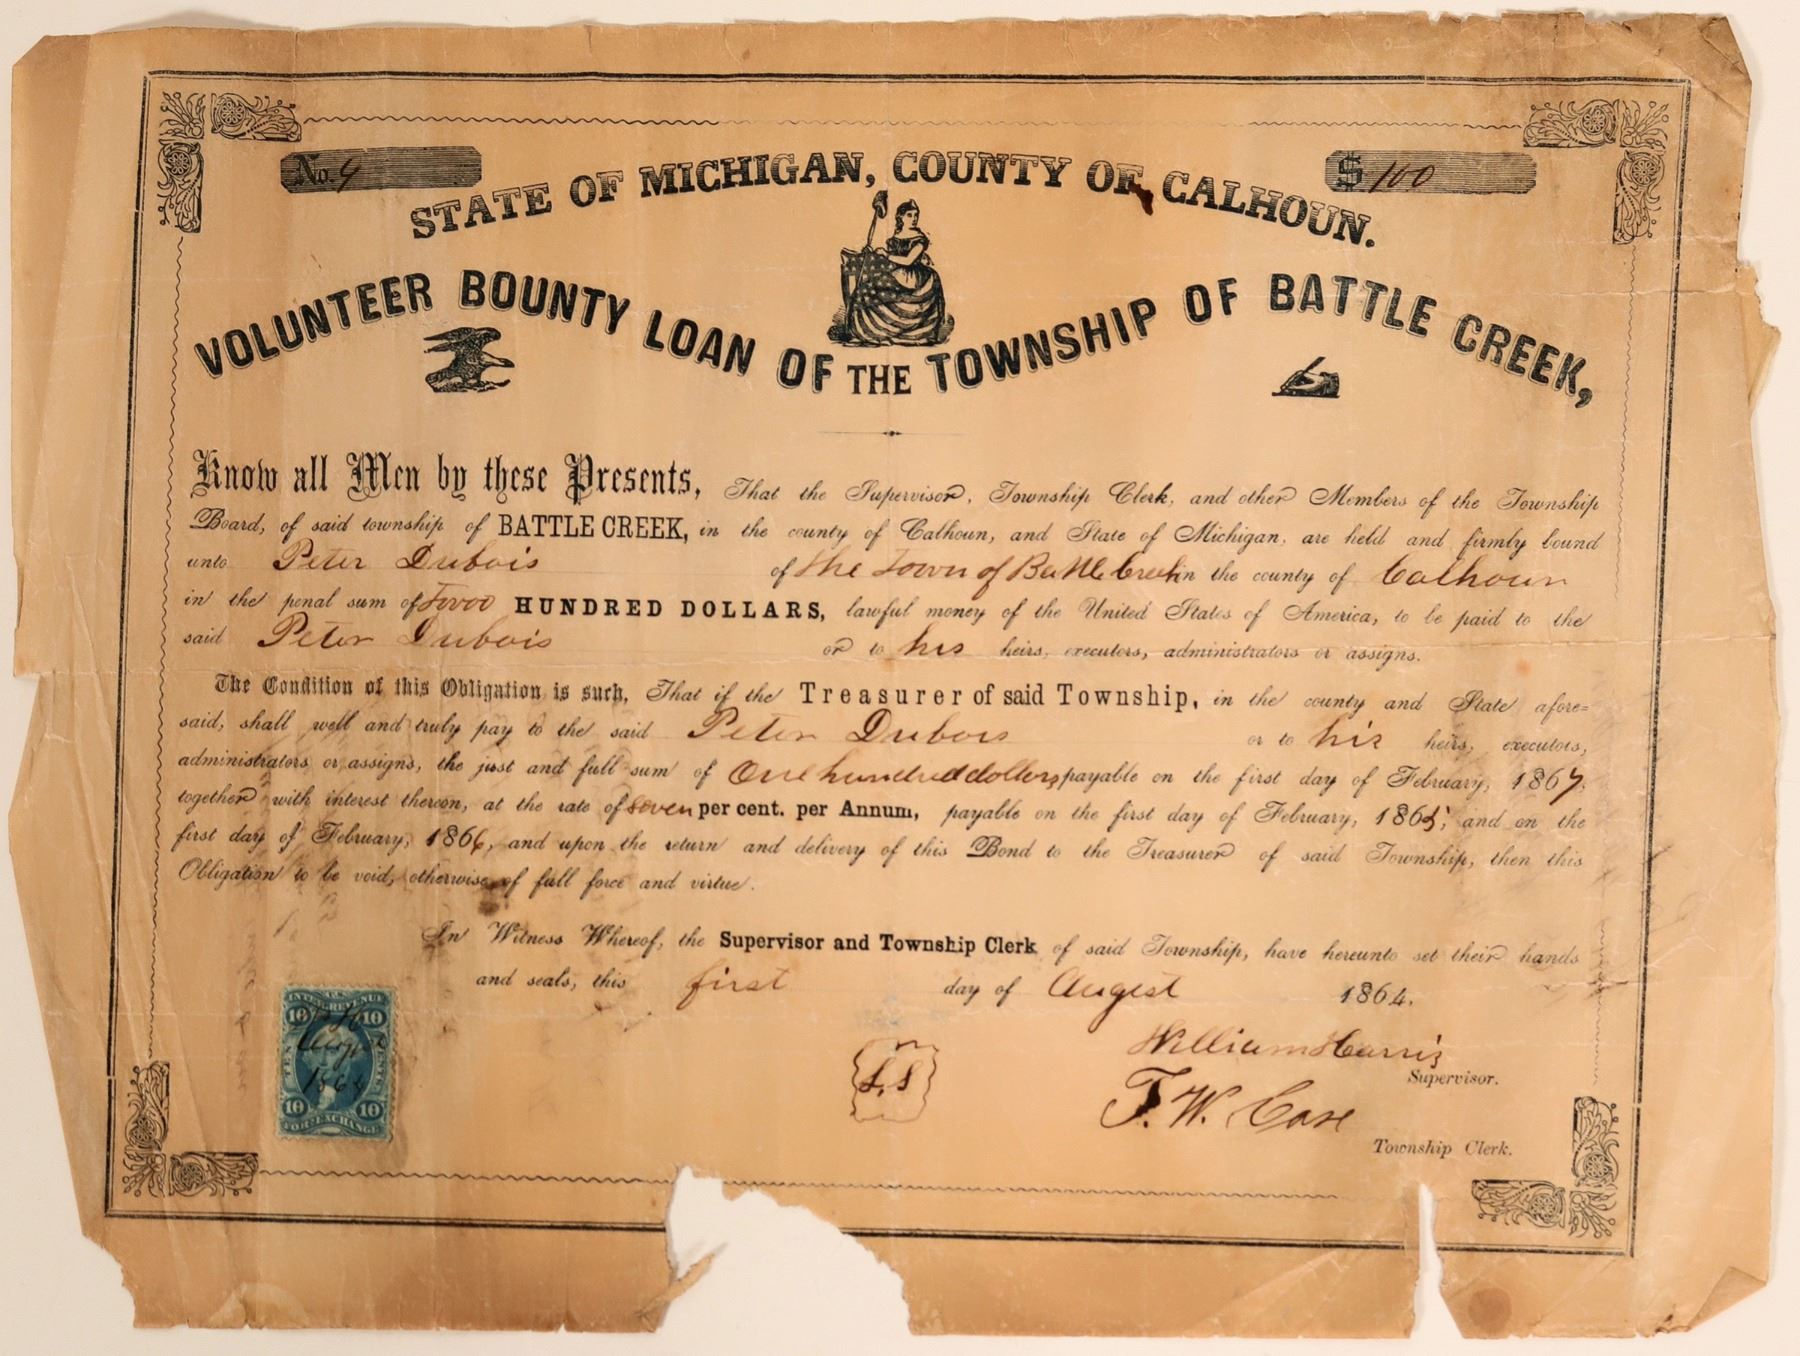 No. 4
$ 100
STATE OF MICHIGAN, COUNTY OF CALHOUN.
VOLUNTEER BOUNTY LOAN OF THE TOWNSHIP OF BATTLE CREEK,
Know all Men by these Presents, That the Supervisor, Township Clerk, and other Members of the Township
Board, of said township of BATTLE CREEK, in the county of Calhoun, and State of Michigan, are held and firmly bound
unto Peter Dubois of the Town of Battle Creek in the county of Calhoun
in the penal sum of Twoo HUNDRED DOLLARS, lawful money of the United States of America, to be paid to the
said Peter Dubois or to his heirs, executors, administrators or assigns.
The Condition of this Obligation is such, That if the Treasurer of said Township, in the county and State afore=
said, shall well and truly pay to the said Peter Dubois or to his heirs, executors,
administrators or assigns, the just and full sum of One hundred dollars payable on the first day of February, 1867,
together with interest thereon, at the rate of seven per cent. per Annum, payable on the first day of February, 1865, and on the
first day of February, 1866, and upon the return and delivery of this Bond to the Treasurer of said Township, then this
Obligation to be void, otherwise of full force and virtue.
In Witness Whereof, the Supervisor and Township Clerk of said Township, have hereunto set their hands
and seals, this first day of Augest 1864.
INTER. REVENUE
10 10
TEN CENTS
1864
10 10
FOR. EXCHANGE
L. S
William Harris
Supervisor.
T. W. Case
Township Clerk.